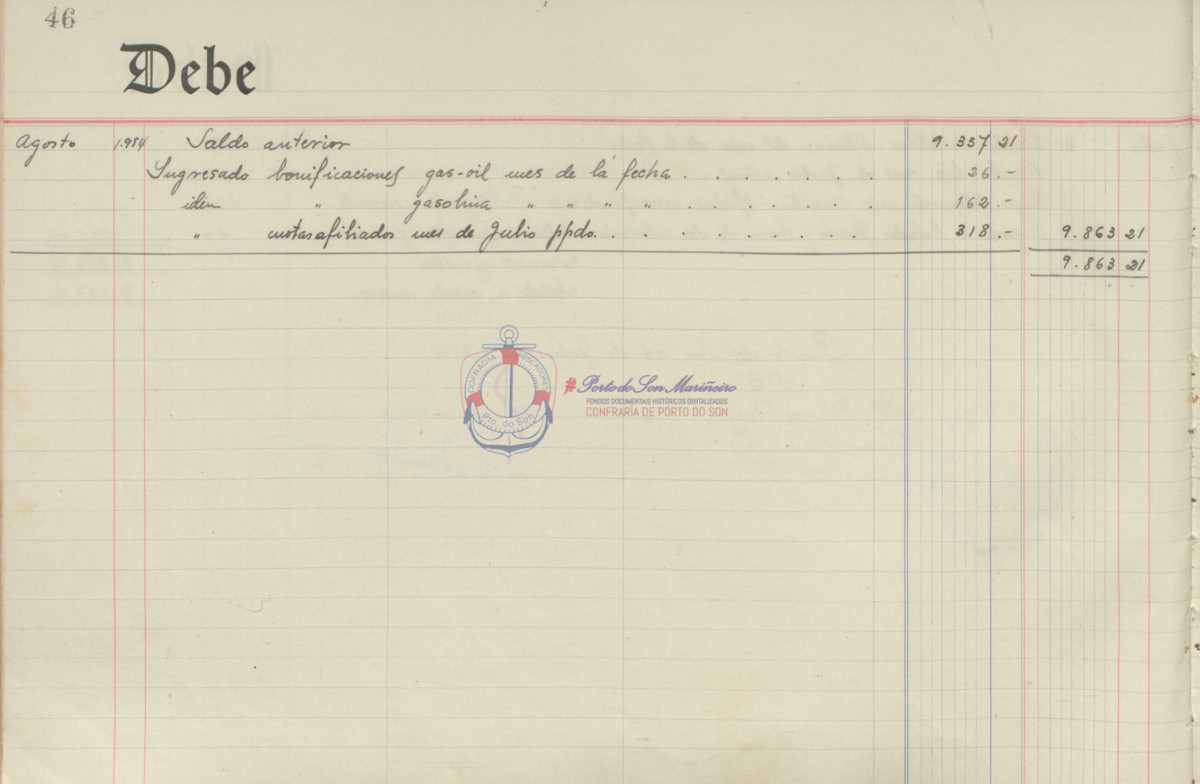 46
Debe
Agosto 1.954 Saldo anterior 9.357 21
Ingresado bonificaciones gas-oil mes de la fecha . . . . . . . 26.-
idem " gasolina " " " " . . . . . . 162.-
" cuotas afiliados mes de Julio ppdo. . . . . . . . . . 318.- 9.863 21
9.863 21
COFRADIA PESCADORES
Pto. do Son
#PortodoSon Mariñeiro
FONDOS DOCUMENTAIS HISTÓRICOS DIGITALIZADOS
CONFRARÍA DE PORTO DO SON